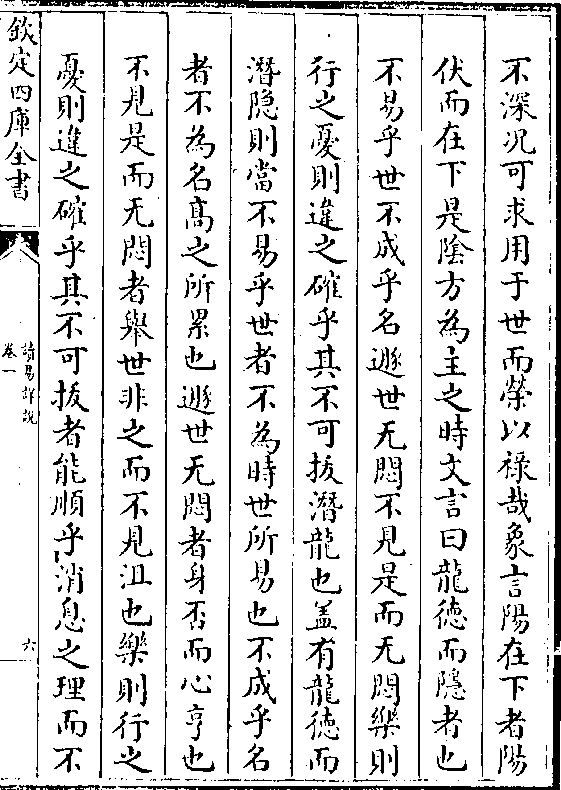 不深沉可求用于世而榮以祿哉象言陽在下者陽
伏而在下是陰方為主之時文言曰龍徳而隱者也
不易乎世不成乎名遯世无悶不見是而无悶樂則
行之憂則違之確乎其不可拔潛龍也蓋有龍徳而
潛隱則當不易乎世者不為時世所易也不成乎名
者不為名髙之所累也遯世无悶者身否而心亨也
不見是而无悶者舉世非之而不見沮也樂則行之
憂則違之確乎其不可拔者能順乎消息之理而不
欽定四庫全書
讀易詳說
卷一
六